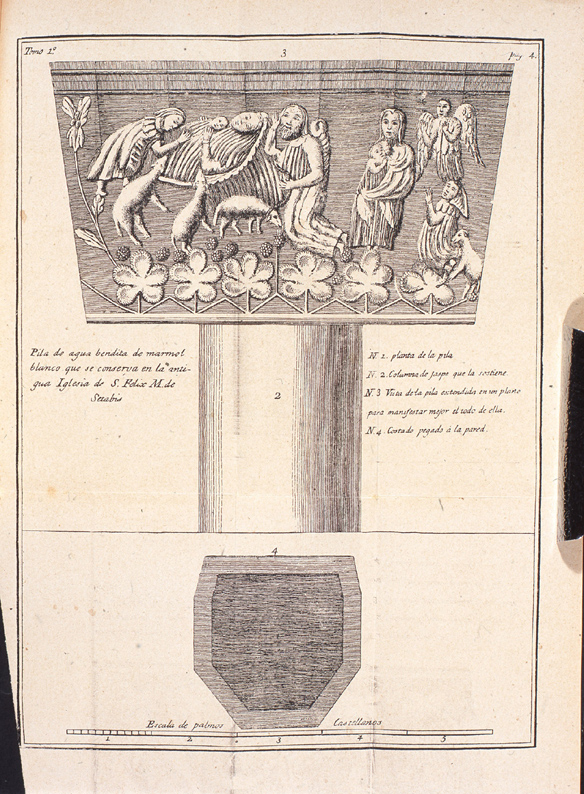 Tomo 1.º
3
pag 4.
Pila de agua bendita de marmol
blanco que se conserva en la anti-
gua Iglesia de S. Felix M. de
Setabis
2
N. 1. planta de la pila
N. 2. Columna de jaspe que la sostiene.
N. 3 Vista de la pila extendida en un plano
para manifestar mejor el todo de ella.
N. 4. Costado pegado à la pared.
4
Escala de palmos Castellanos
1 2 3 4 5